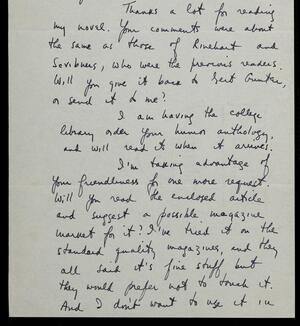 Thanks a lot for reading
my novel. Your comments were about
the same as those of Rinehart and
Scribners, who were the previous readers.
Will you give it back to Gert Gunter,
or send it to me?
I am having the college
library order your humor anthology,
and will read it when it arrives.
I'm taking advantage of
your friendliness for one more request.
Will you read the enclosed article
and suggest a possible magazine
market for it? I've tried it on the
standard quality magazines, and they
all said it's fine stuff but
they would prefer not to touch it.
And I don't want to use it in